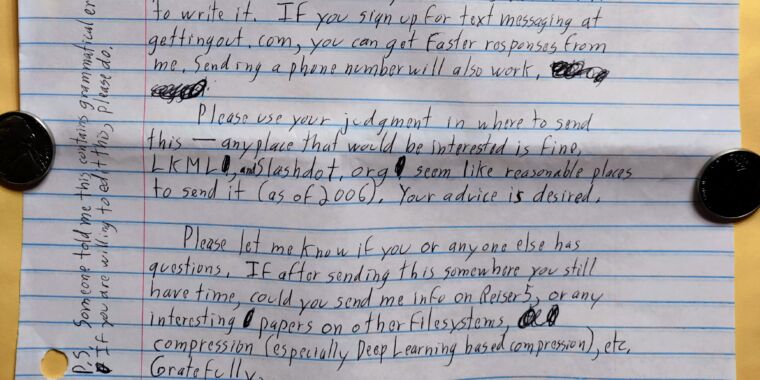 to write it. If you sign up for text messaging at
gettingout.com, you can get faster responses from
me. Sending a phone number will also work.
Please use your judgment in where to send
this — anyplace that would be interested is fine.
LKML, and Slashdot.org seem like reasonable places
to send it (as of 2006). Your advice is desired.
Please let me know if you or anyone else has
questions. If after sending this somewhere you still
have time, could you send me info on Reiser5, or any
interesting papers on other filesystems,
compression (especially Deep Learning based compression), etc.
Gratefully,
P.S. Someone told me this contains grammatical er
If you are willing to edit tho, please do.